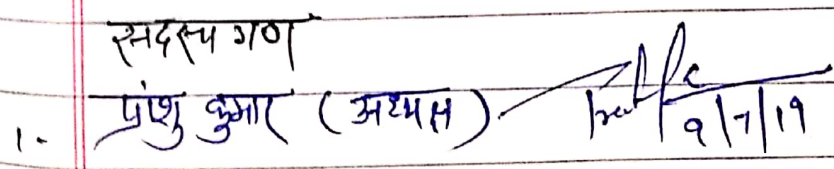 सदस्य गण
1- प्रांशु कुमार (अध्यक्ष) 9/7/19